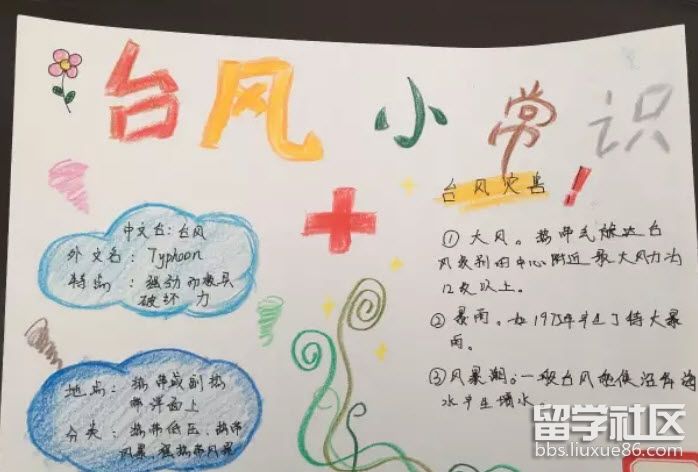 台风小常识
中文台：台风
外文名：Typhoon
特点：强劲而极具
破坏力
地点：热带或副热
带洋面上
分类：热带低压、热带
风暴、强热带风暴
台风灾害！
① 大风。热带气旋达台
风级别的中心附近最大风力为
12级以上。
② 暴雨。如1975年
特大暴
雨。
③ 风暴潮：一般台风能使沿岸海
水产生增水。
留学社区
bbs.liuxue86.com